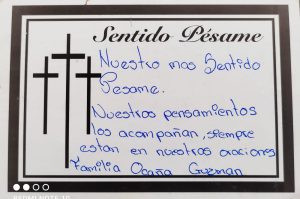 Sentido Pésame
Nuestro mas Sentido
Pesame.
Nuestros pensamientos
los acompañan, siempre
estan en nuestras oraciones
Familia Ocaña Guzman